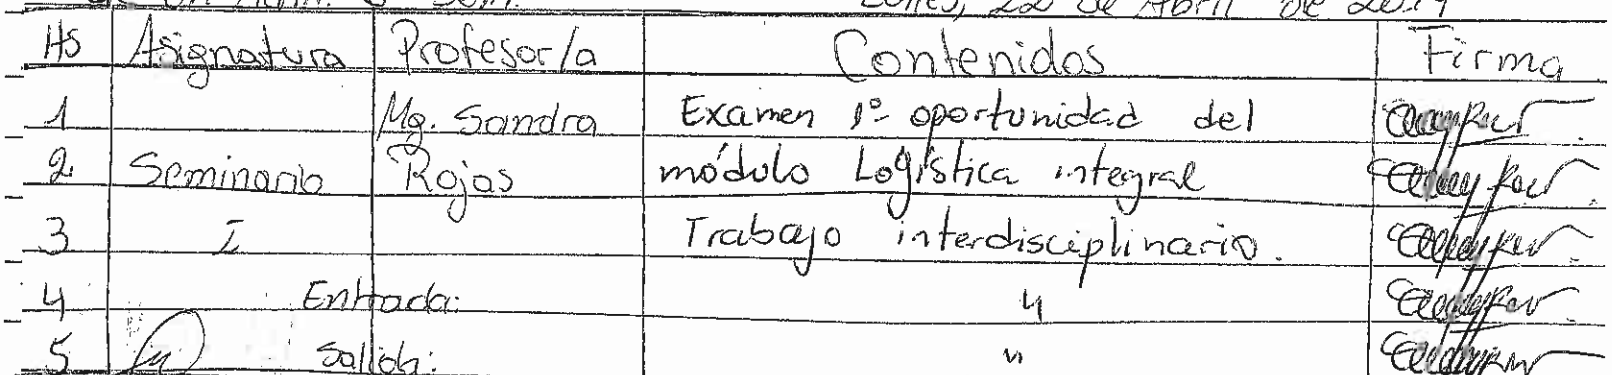 Lunes, 22 de Abril de 2019
Hs Asignatura Profesor/a Contenidos Firma
1 Mg. Sandra Examen 1º oportunidad del
2 Seminario Rojas módulo Logística integral
3 I Trabajo interdisciplinario.
4 Entrada: "
5 Salida: "